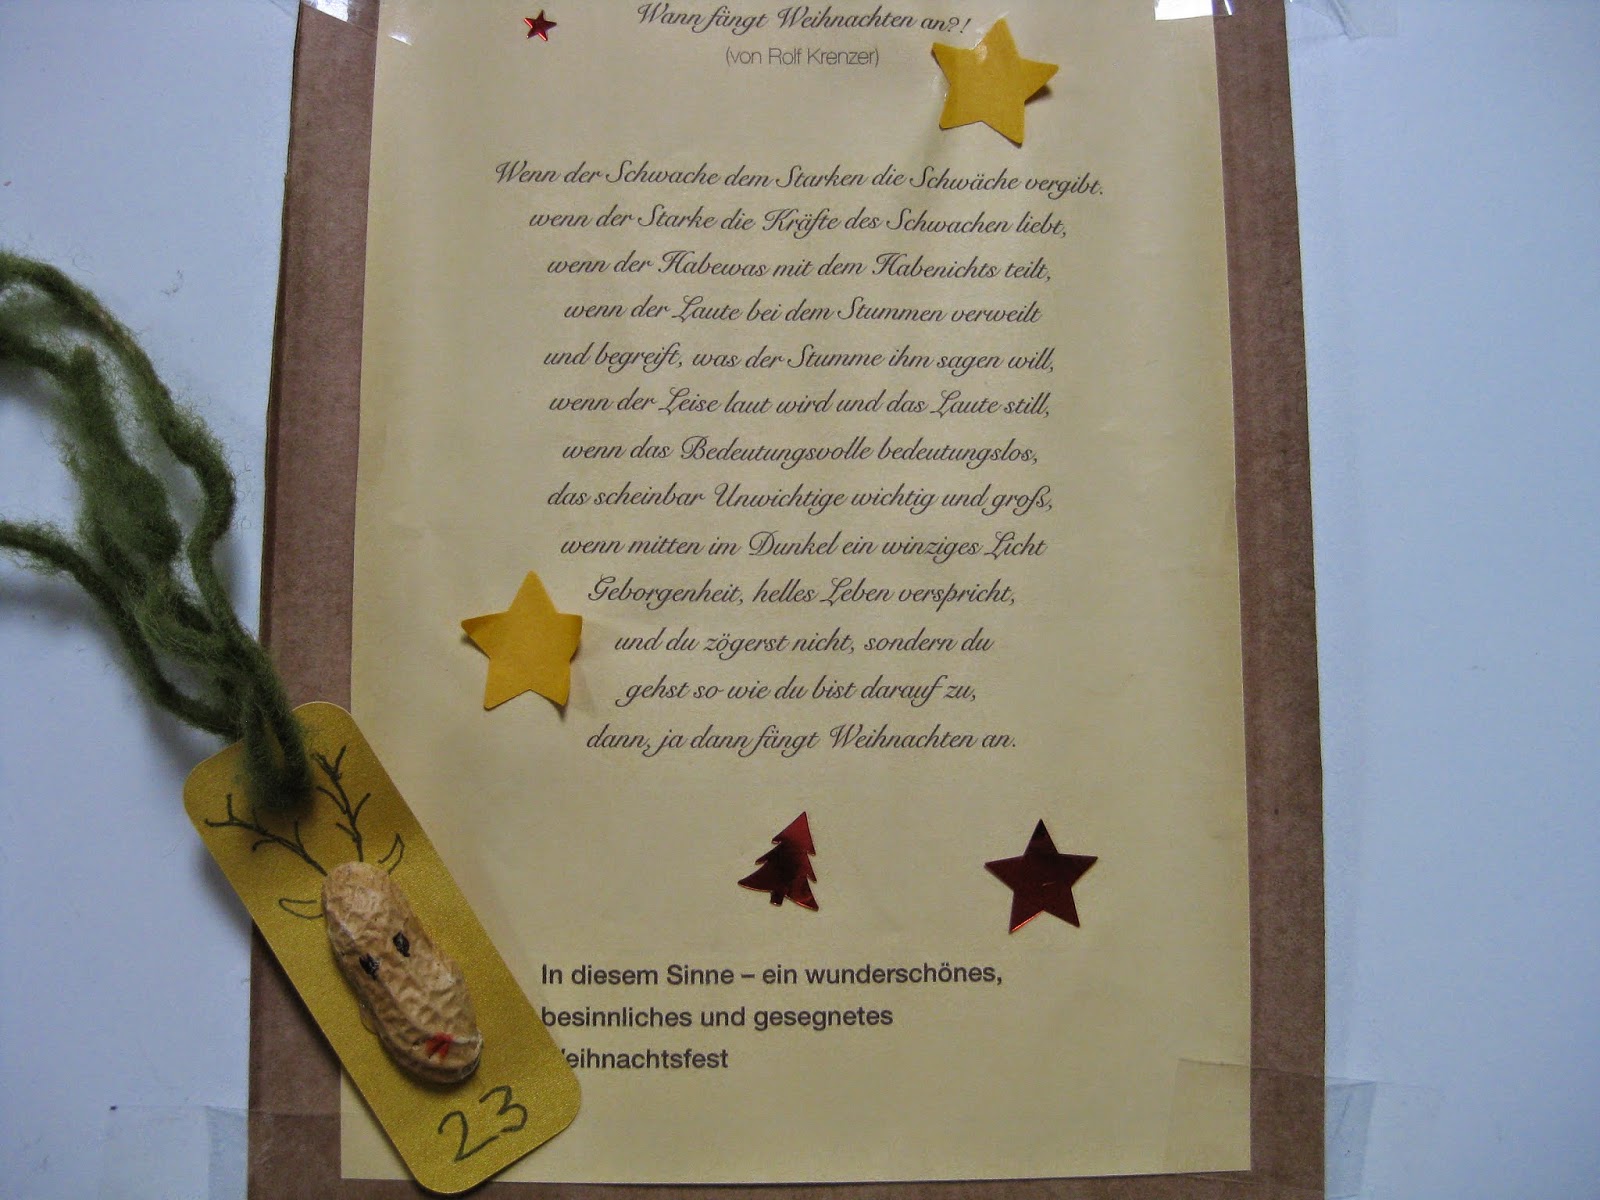 Wann fängt Weihnachten an?!
(von Rolf Krenzer)
Wenn der Schwache dem Starken die Schwäche vergibt.
wenn der Starke die Kräfte des Schwachen liebt,
wenn der Habewas mit dem Habenichts teilt,
wenn der Laute bei dem Stummen verweilt
und begreift, was der Stumme ihm sagen will,
wenn der Leise laut wird und das Laute still,
wenn das Bedeutungsvolle bedeutungslos,
das scheinbar Unwichtige wichtig und groß,
wenn mitten im Dunkel ein winziges Licht
Geborgenheit, helles Leben verspricht,
und du zögerst nicht, sondern du
gehst so wie du bist darauf zu,
dann, ja dann fängt Weihnachten an.
In diesem Sinne – ein wunderschönes,
besinnliches und gesegnetes
Weihnachtsfest
23